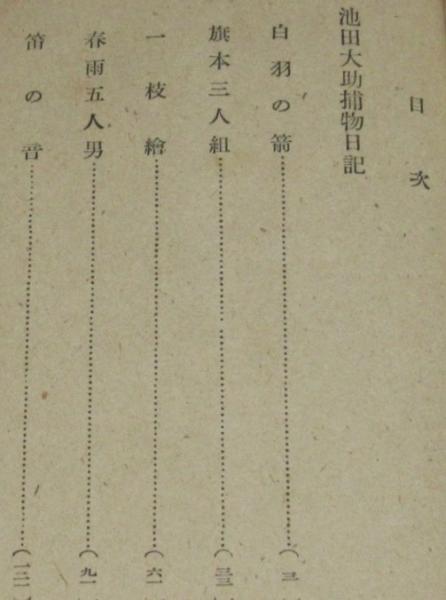 目次
池田大助捕物日記
白羽の箭……(三
旗本三人組……(三三
一枝繪……(六一
春雨五人男……(九一
笛の音……(一二一